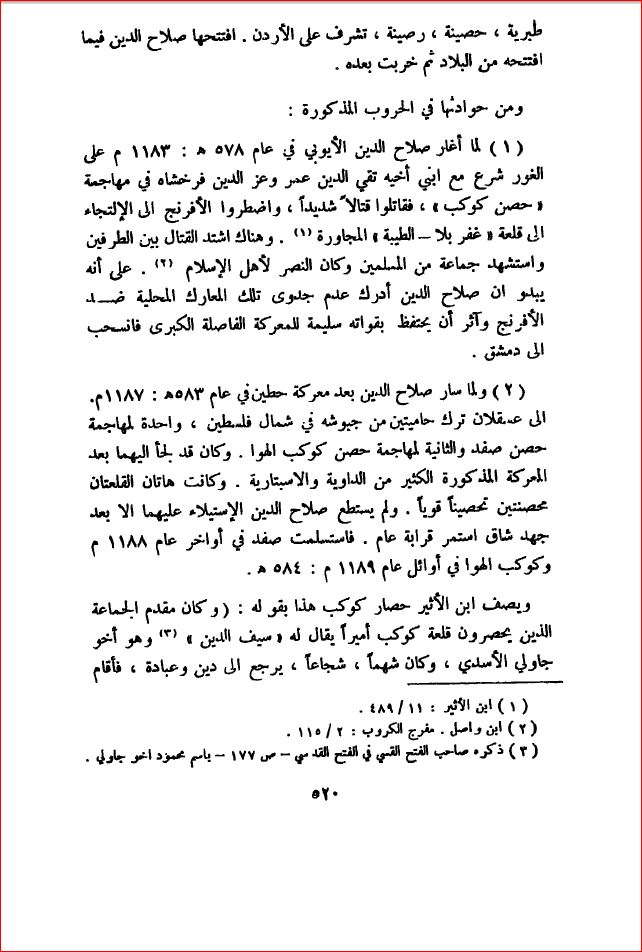 طبرية ، حصينة ، رصينة ، تشرف على الأردن . افتتحها صلاح الدين فيما
افتتحه من البلاد ثم خربت بعده .
ومن حوادثها في الحروب المذكورة :
(١) لما أغار صلاح الدين الأيوبي في عام ٥٧٨ ه : ١١٨٣ م على
الغور شرع مع ابني أخيه تقي الدين عمر وعز الدين فرخشاه في مهاجمة
« حصن كوكب » ، فقاتلوا قتالاً شديداً ، واضطروا الأفرنج الى الإلتجاء
الى قلعة « غفر بلا – الطيبة » المجاورة (١) . وهناك اشتد القتال بين الطرفين
واستشهد جماعة من المسلمين وكان النصر لأهل الإسلام (٢) . على أنه
يبدو ان صلاح الدين أدرك عدم جدوى تلك المعارك المحلية ضــد
الأفرنج وآثر أن يحتفظ بقواته سليمة للمعركة الفاصلة الكبرى فانسحب
الى دمشق .
(٢) ولما سار صلاح الدين بعد معركة حطين في عام ٥٨٣ه : ١١٨٧م.
الى عسقلان ترك حاميتين من جيوشه في شمال فلسطين ، واحدة لمهاجمة
حصن صفد والثانية لمهاجمة حصن كوكب الهوا . وكان قد لجأ اليهما بعد
المعركة المذكورة الكثير من الداوية والاسبتارية . وكانت هاتان القلعتان
محصنتين تحصيناً قوياً . ولم يستطع صلاح الدين الإستيلاء عليهما الا بعد
جهد شاق استمر قرابة عام . فاستسلمت صفد في أواخر عام ١١٨٨ م
وكوكب الهوا في أوائل عام ١١٨٩ م : ٥٨٤ ه .
ويصف ابن الأثير حصار كوكب هذا بقوله : ( وكان مقدم الجماعة
الذين يحصرون قلعة كوكب أميراً يقال له « سيف الدين » (٣) وهو أخو
جاولي الأسدي ، وكان شهماً ، شجاعاً ، يرجع الى دين وعبادة ، فأقام
(١) ابن الأثير : ١١/ ٤٨٩ .
(٢) ابن واصل . مفرج الكروب : ٢ / ١١٥ .
(٣) ذكره صاحب الفتح القسي في الفتح القدسي – ص ١٧٧ – باسم محمود اخو جاولي .
٥٢٠